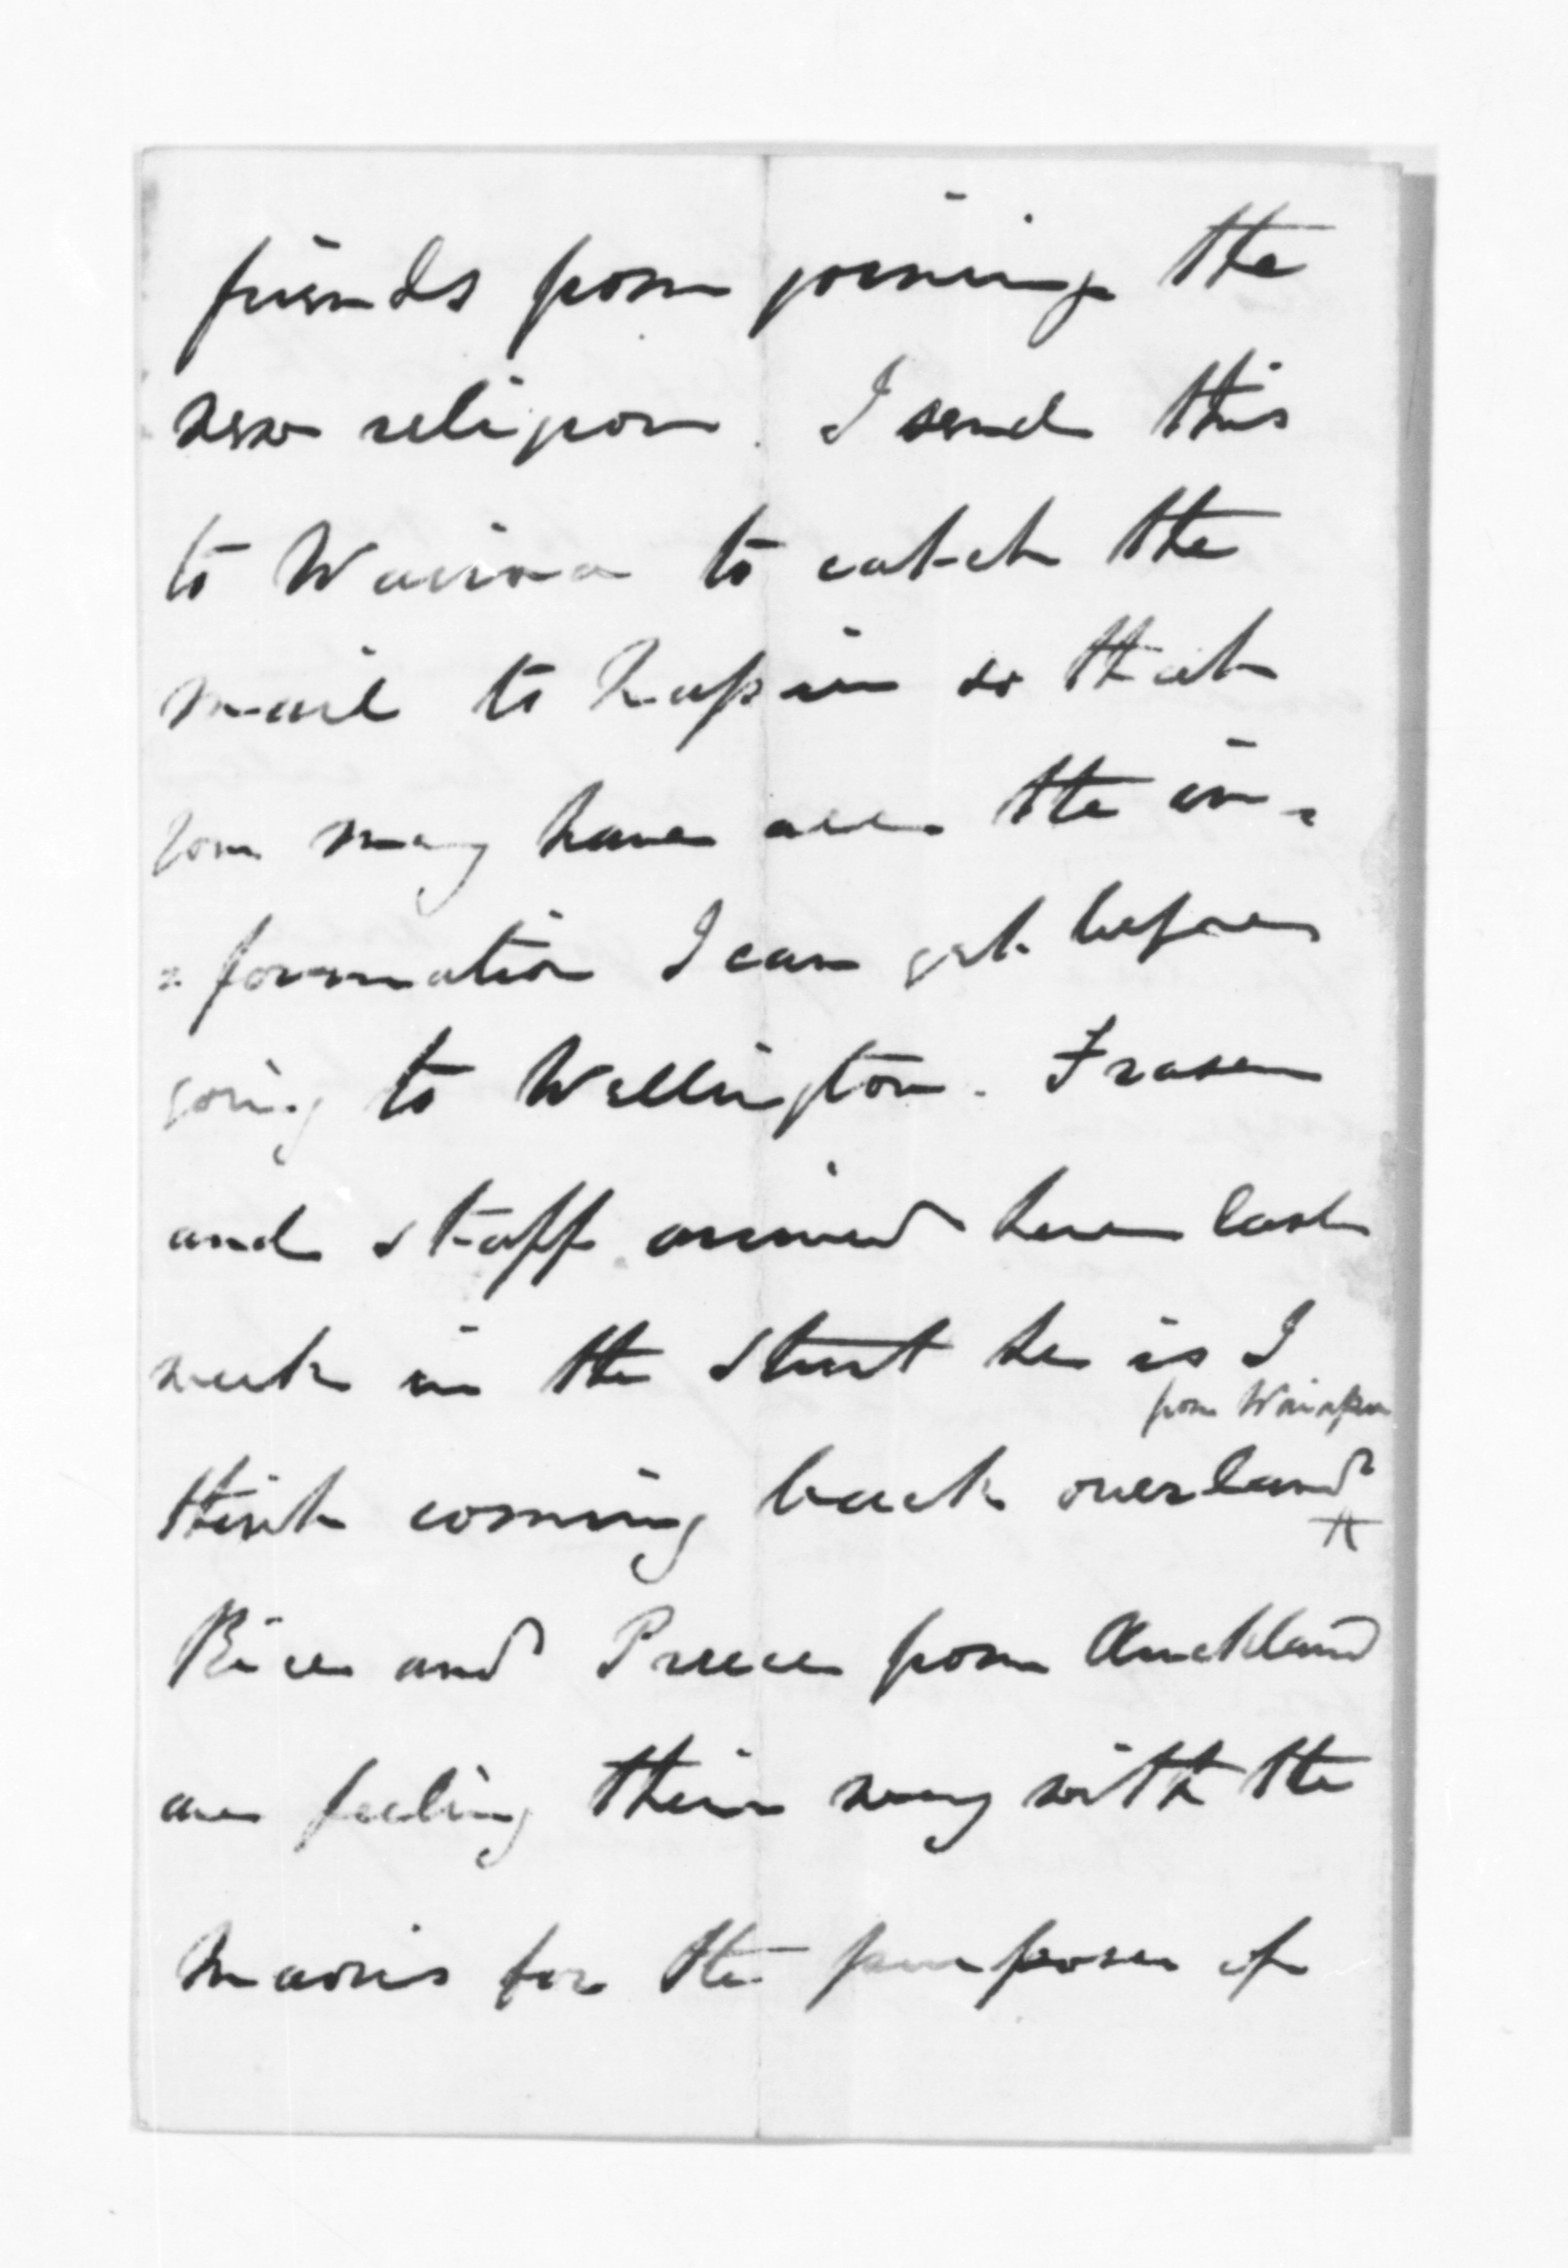 friends from joining the
new religion. I send this
to Wairoa to catch the
mail to Napier so that
you may have all the in-
=formation I can get before
going to Wellington. Fraser
and staff arrived here last
week in the Sturt he is I
from Waiapu
think coming back overland
Rice and Preece from Auckland
are feeling their way with the
Maoris for the purpose of